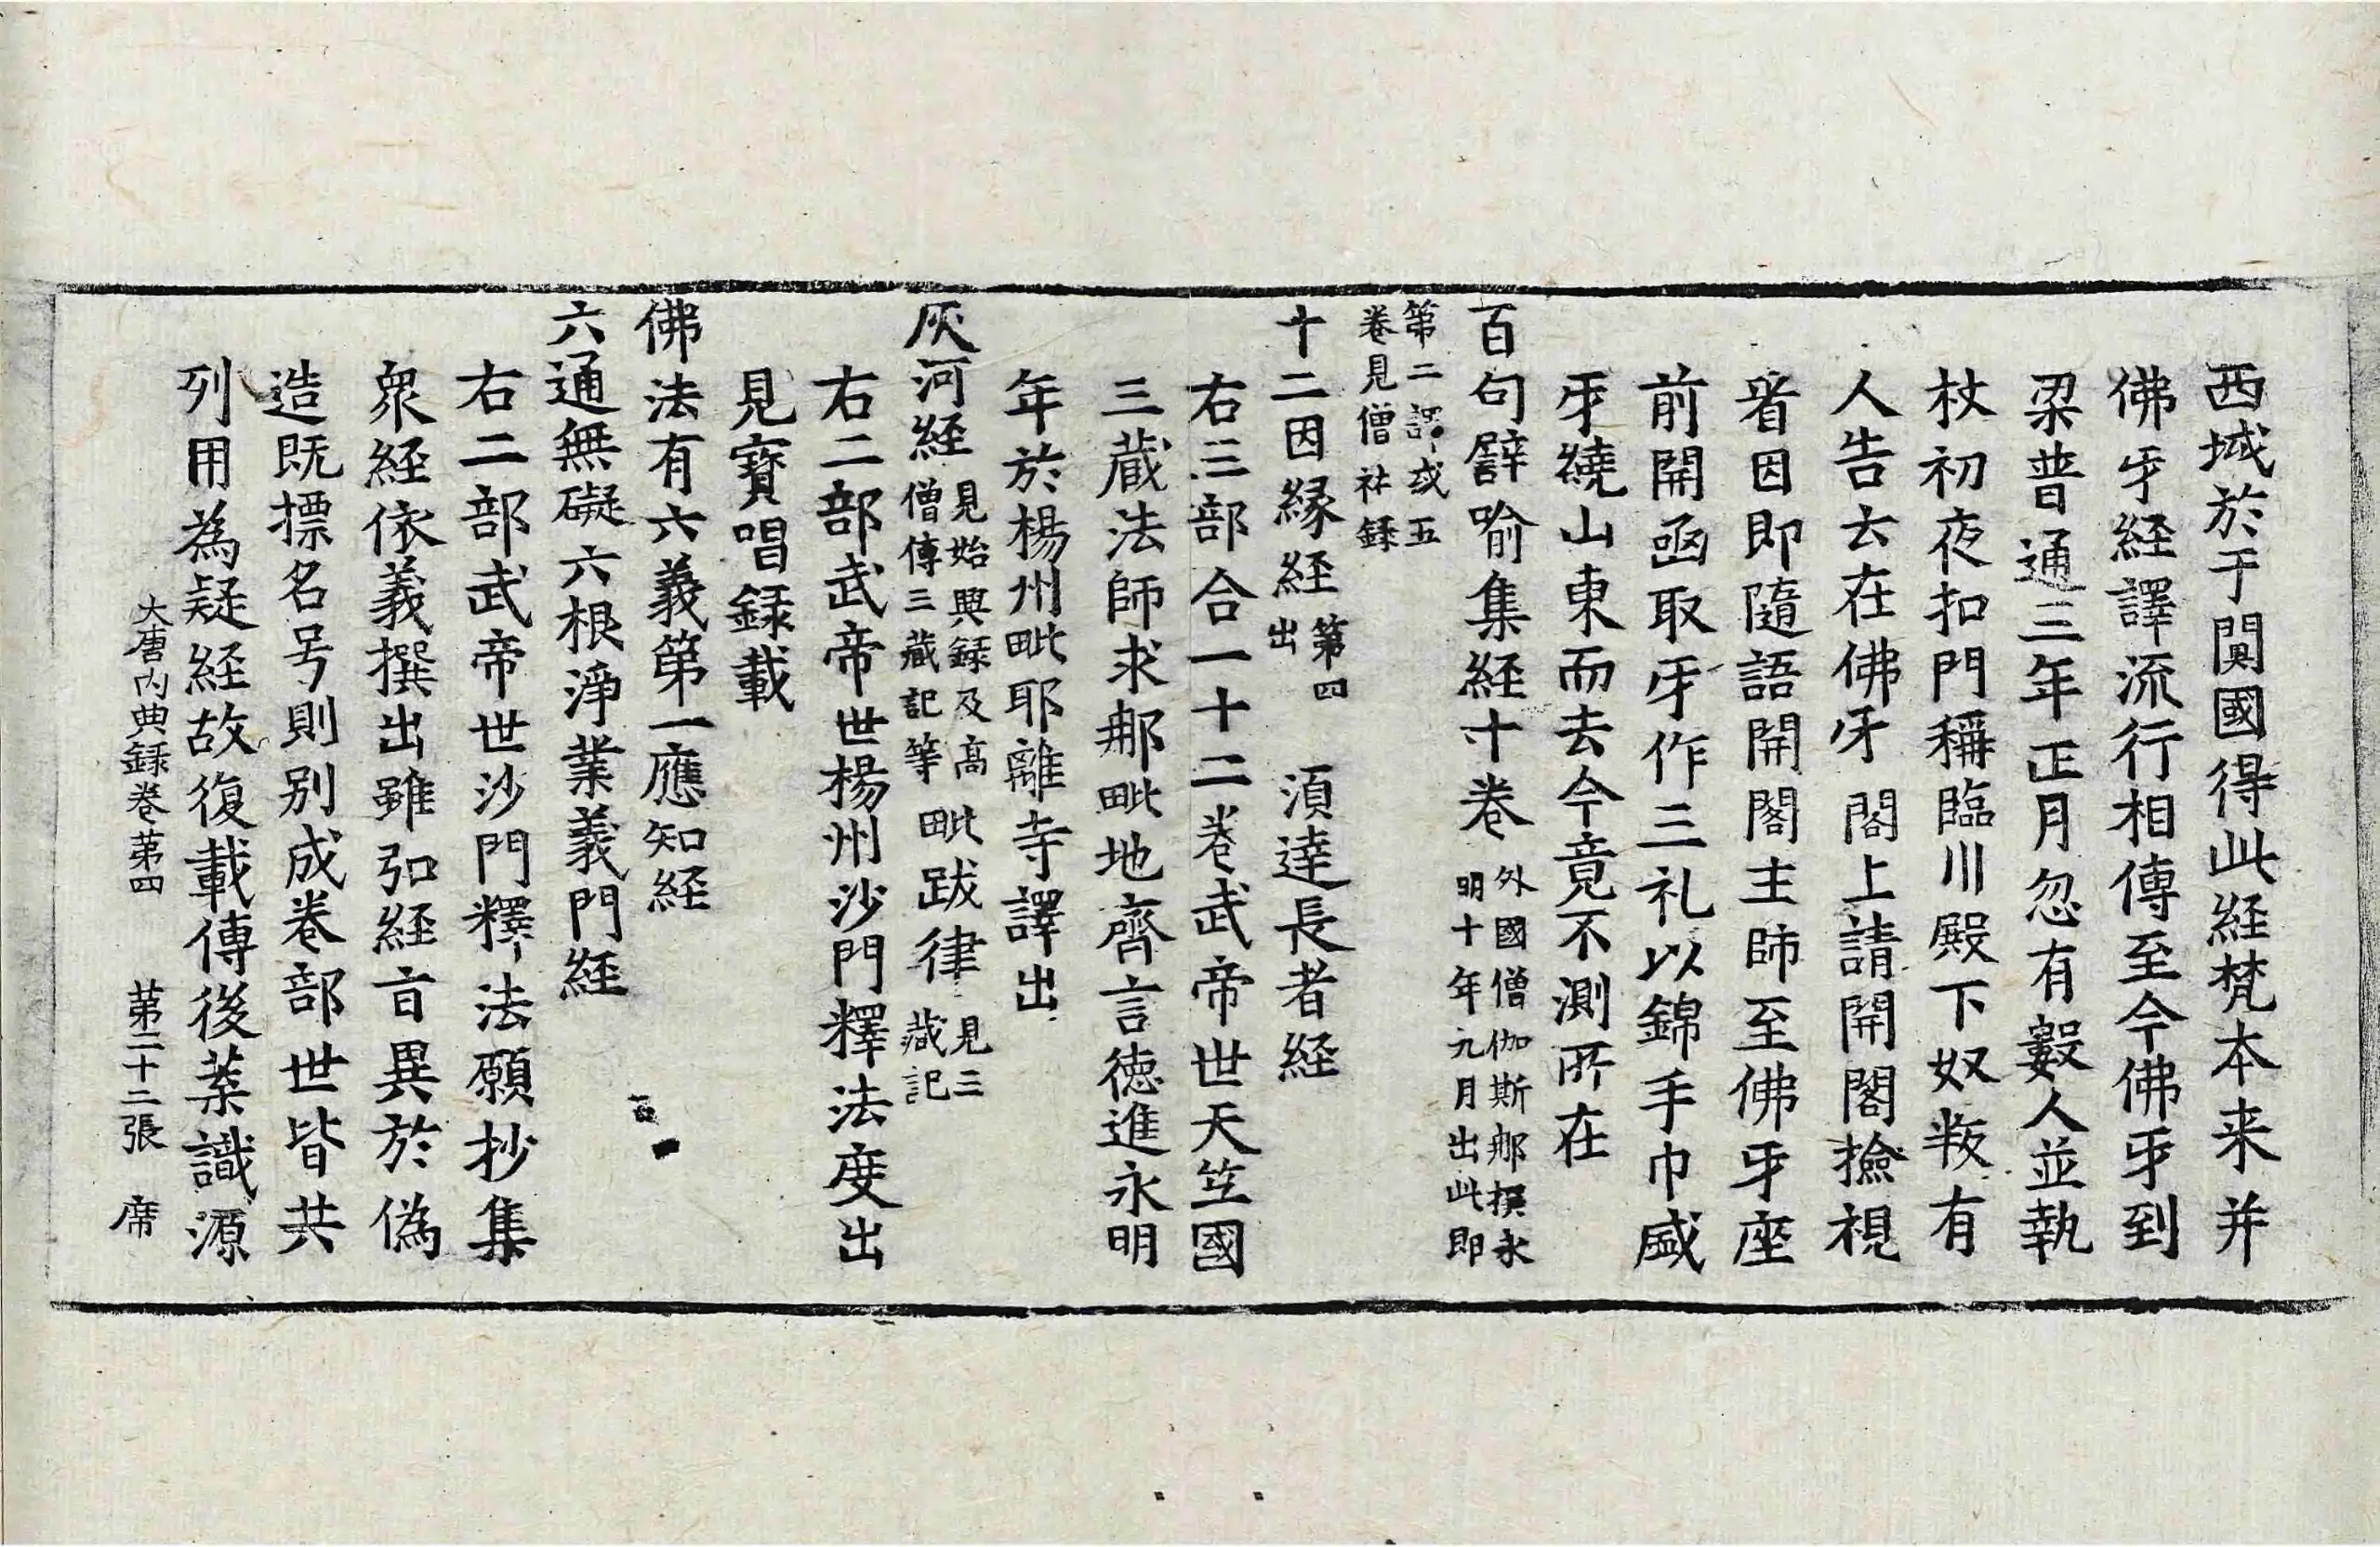 西域於于闐國得此経梵本来并
佛牙経譯流行相傳至今佛牙到
梁普通三年正月忽有數人並執
杖初夜扣門稱臨川殿下奴叛有
人告去在佛牙閤上請開閤撿視
者因即隨語開閤主師至佛牙座
前開函取牙作三礼以錦手巾盛
牙繞山東而去今竟不測所在
百句譬喻集経十卷 外國僧伽斯那撰永
明十年九月出此即
第二譯或五
卷見僧祐録
十二因縁経 第四
出 湏達長者経
右三部合一十二卷武帝世天竺國
三藏法師求那毗地齊言徳進永明
年於楊州毗耶離寺譯出
灰河経 見始興録及髙
僧傳三藏記等 毗跋律 見三
藏記
右二部武帝世楊州沙門釋法度出
見寶唱録載
佛法有六義第一應知経
六通無礙六根淨業義門経
右二部武帝世沙門釋法願抄集
衆経依義撰出雖弘経旨異於偽
造既摽名号則别成卷部世皆共
列用為疑経故復載傳後葉識源
大唐内典録卷苐四 苐二十二張 席